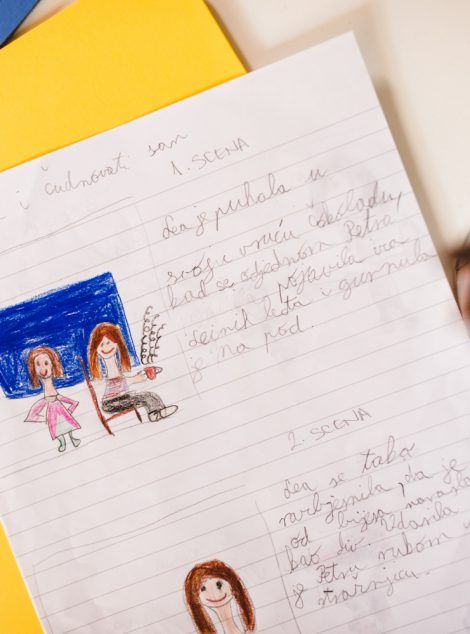 i čudnovati san
1. SCENA
Lea je puhala u
svoju vruću čokoladu,
kad se odjednom Petra
pojavila iza
Leinih leđa i gurnula
je na pod.
2. SCENA
Lea se tako
razbjesnila, da je
od bijesa
kao div. Udarila
je Petru nubom
stražnjicu.